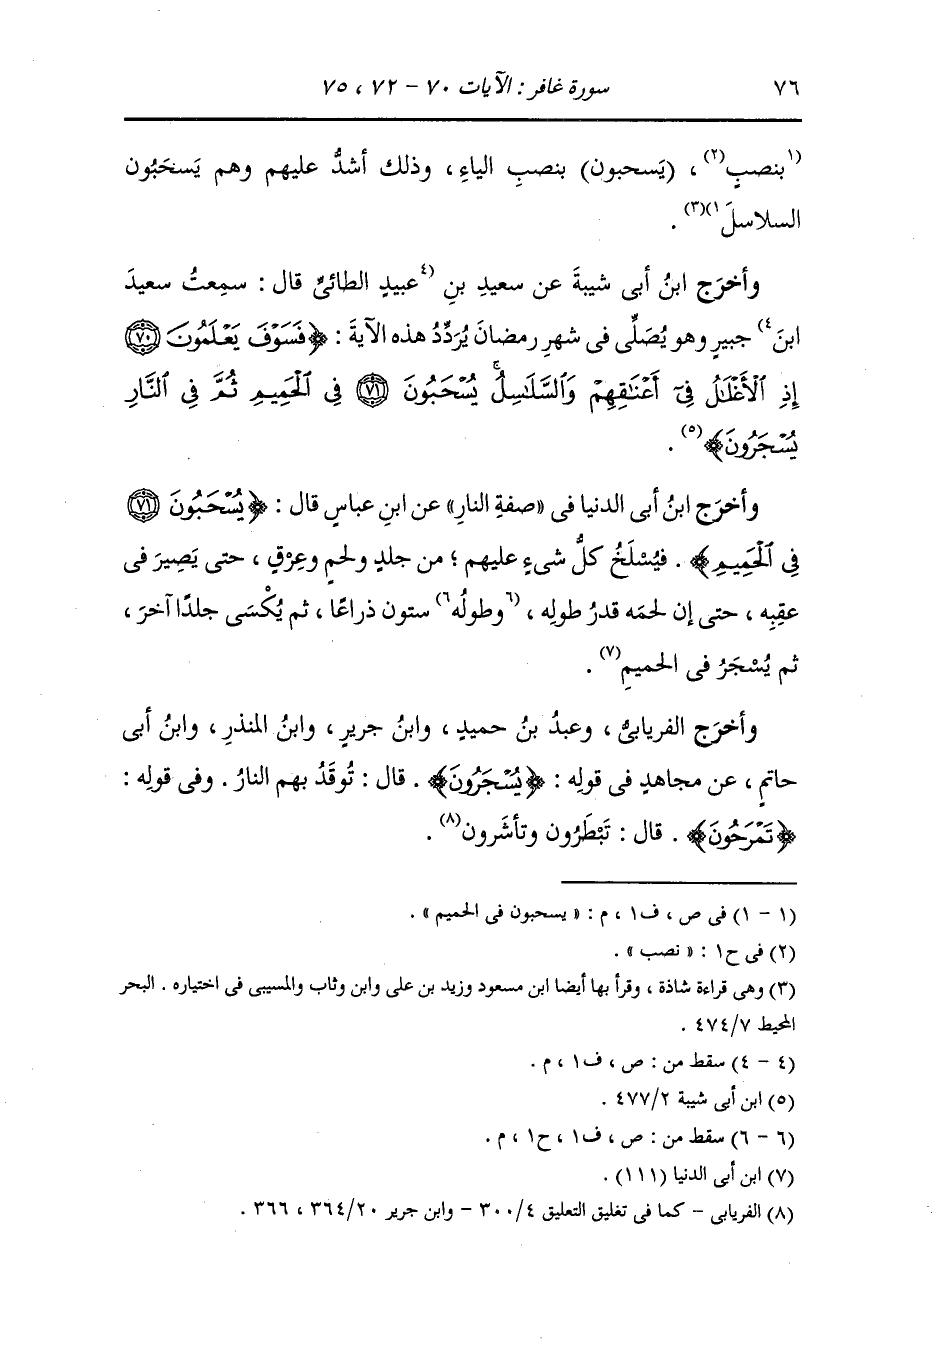 ٧٦ سورة غافر : الآيات ٧٠ - ٧٢ ، ٧٥
(١بنصبٍ(٢) ، (يَسحبون) بنصبِ الياءِ ، وذلك أشدُّ عليهم وهم يَسحَبُون
السلاسلَ١)(٣) .
وأخرَج ابنُ أبى شيبةَ عن سعيدِ بنِ (٤عبيدٍ الطائىِّ قال : سمِعتُ سعيدَ
ابنَ٤) جبيرٍ وهو يُصَلِّى فى شهرِ رمضانَ يُرَدِّدُ هذه الآيةَ : ﴿فَسَوْفَ يَعْلَمُونَ ٧٠
إِذِ ٱلْأَغْلَٰلُ فِىٓ أَعْنَٰقِهِمْ وَٱلسَّلَٰسِلُ يُسْحَبُونَ ٧١ فِى ٱلْحَمِيمِ ثُمَّ فِى ٱلنَّارِ
يُسْجَرُونَ﴾(٥) .
وأخرَج ابنُ أبى الدنيا فى «صفةِ النارِ» عن ابنِ عباسٍ قال : ﴿يُسْحَبُونَ ٧١
فِى ٱلْحَمِيمِ﴾ . فيُسْلَخُ كلُّ شىءٍ عليهم ؛ من جلدٍ ولحمٍ وعِرْقٍ ، حتى يَصِيرَ فى
عقِبِه ، حتى إن لحمَه قدرُ طولِه ، (٦وطولُه٦) ستون ذراعًا ، ثم يُكْسَى جلدًا آخرَ ،
ثم يُسْجَرُ فى الحميمِ(٧) .
وأخرَج الفريابىُّ ، وعبدُ بنُ حميدٍ ، وابنُ جريرٍ ، وابنُ المنذرِ ، وابنُ أبى
حاتمٍ ، عن مجاهدٍ فى قولِه : ﴿يُسْجَرُونَ﴾ . قال : تُوقَدُ بهم النارُ . وفى قولِه :
﴿تَمْرَحُونَ﴾ . قال : تَبْطَرُون وتأشَرون(٨) .
(١ - ١) فى ص ، ف١ ، م : « يسحبون فى الحميم » .
(٢) فى ح١ : « نصب » .
(٣) وهى قراءة شاذة ، وقرأ بها أيضا ابن مسعود وزيد بن على وابن وثاب والمسيبى فى اختياره . البحر
المحيط ٤٧٤/٧ .
(٤ - ٤) سقط من : ص ، ف١ ، م .
(٥) ابن أبى شيبة ٤٧٧/٢ .
(٦ - ٦) سقط من : ص ، ف١ ، ح١ ، م .
(٧) ابن أبى الدنيا (١١١) .
(٨) الفريابى - كما فى تغليق التعليق ٣٠٠/٤ - وابن جرير ٣٦٤/٢٠ ، ٣٦٦ .